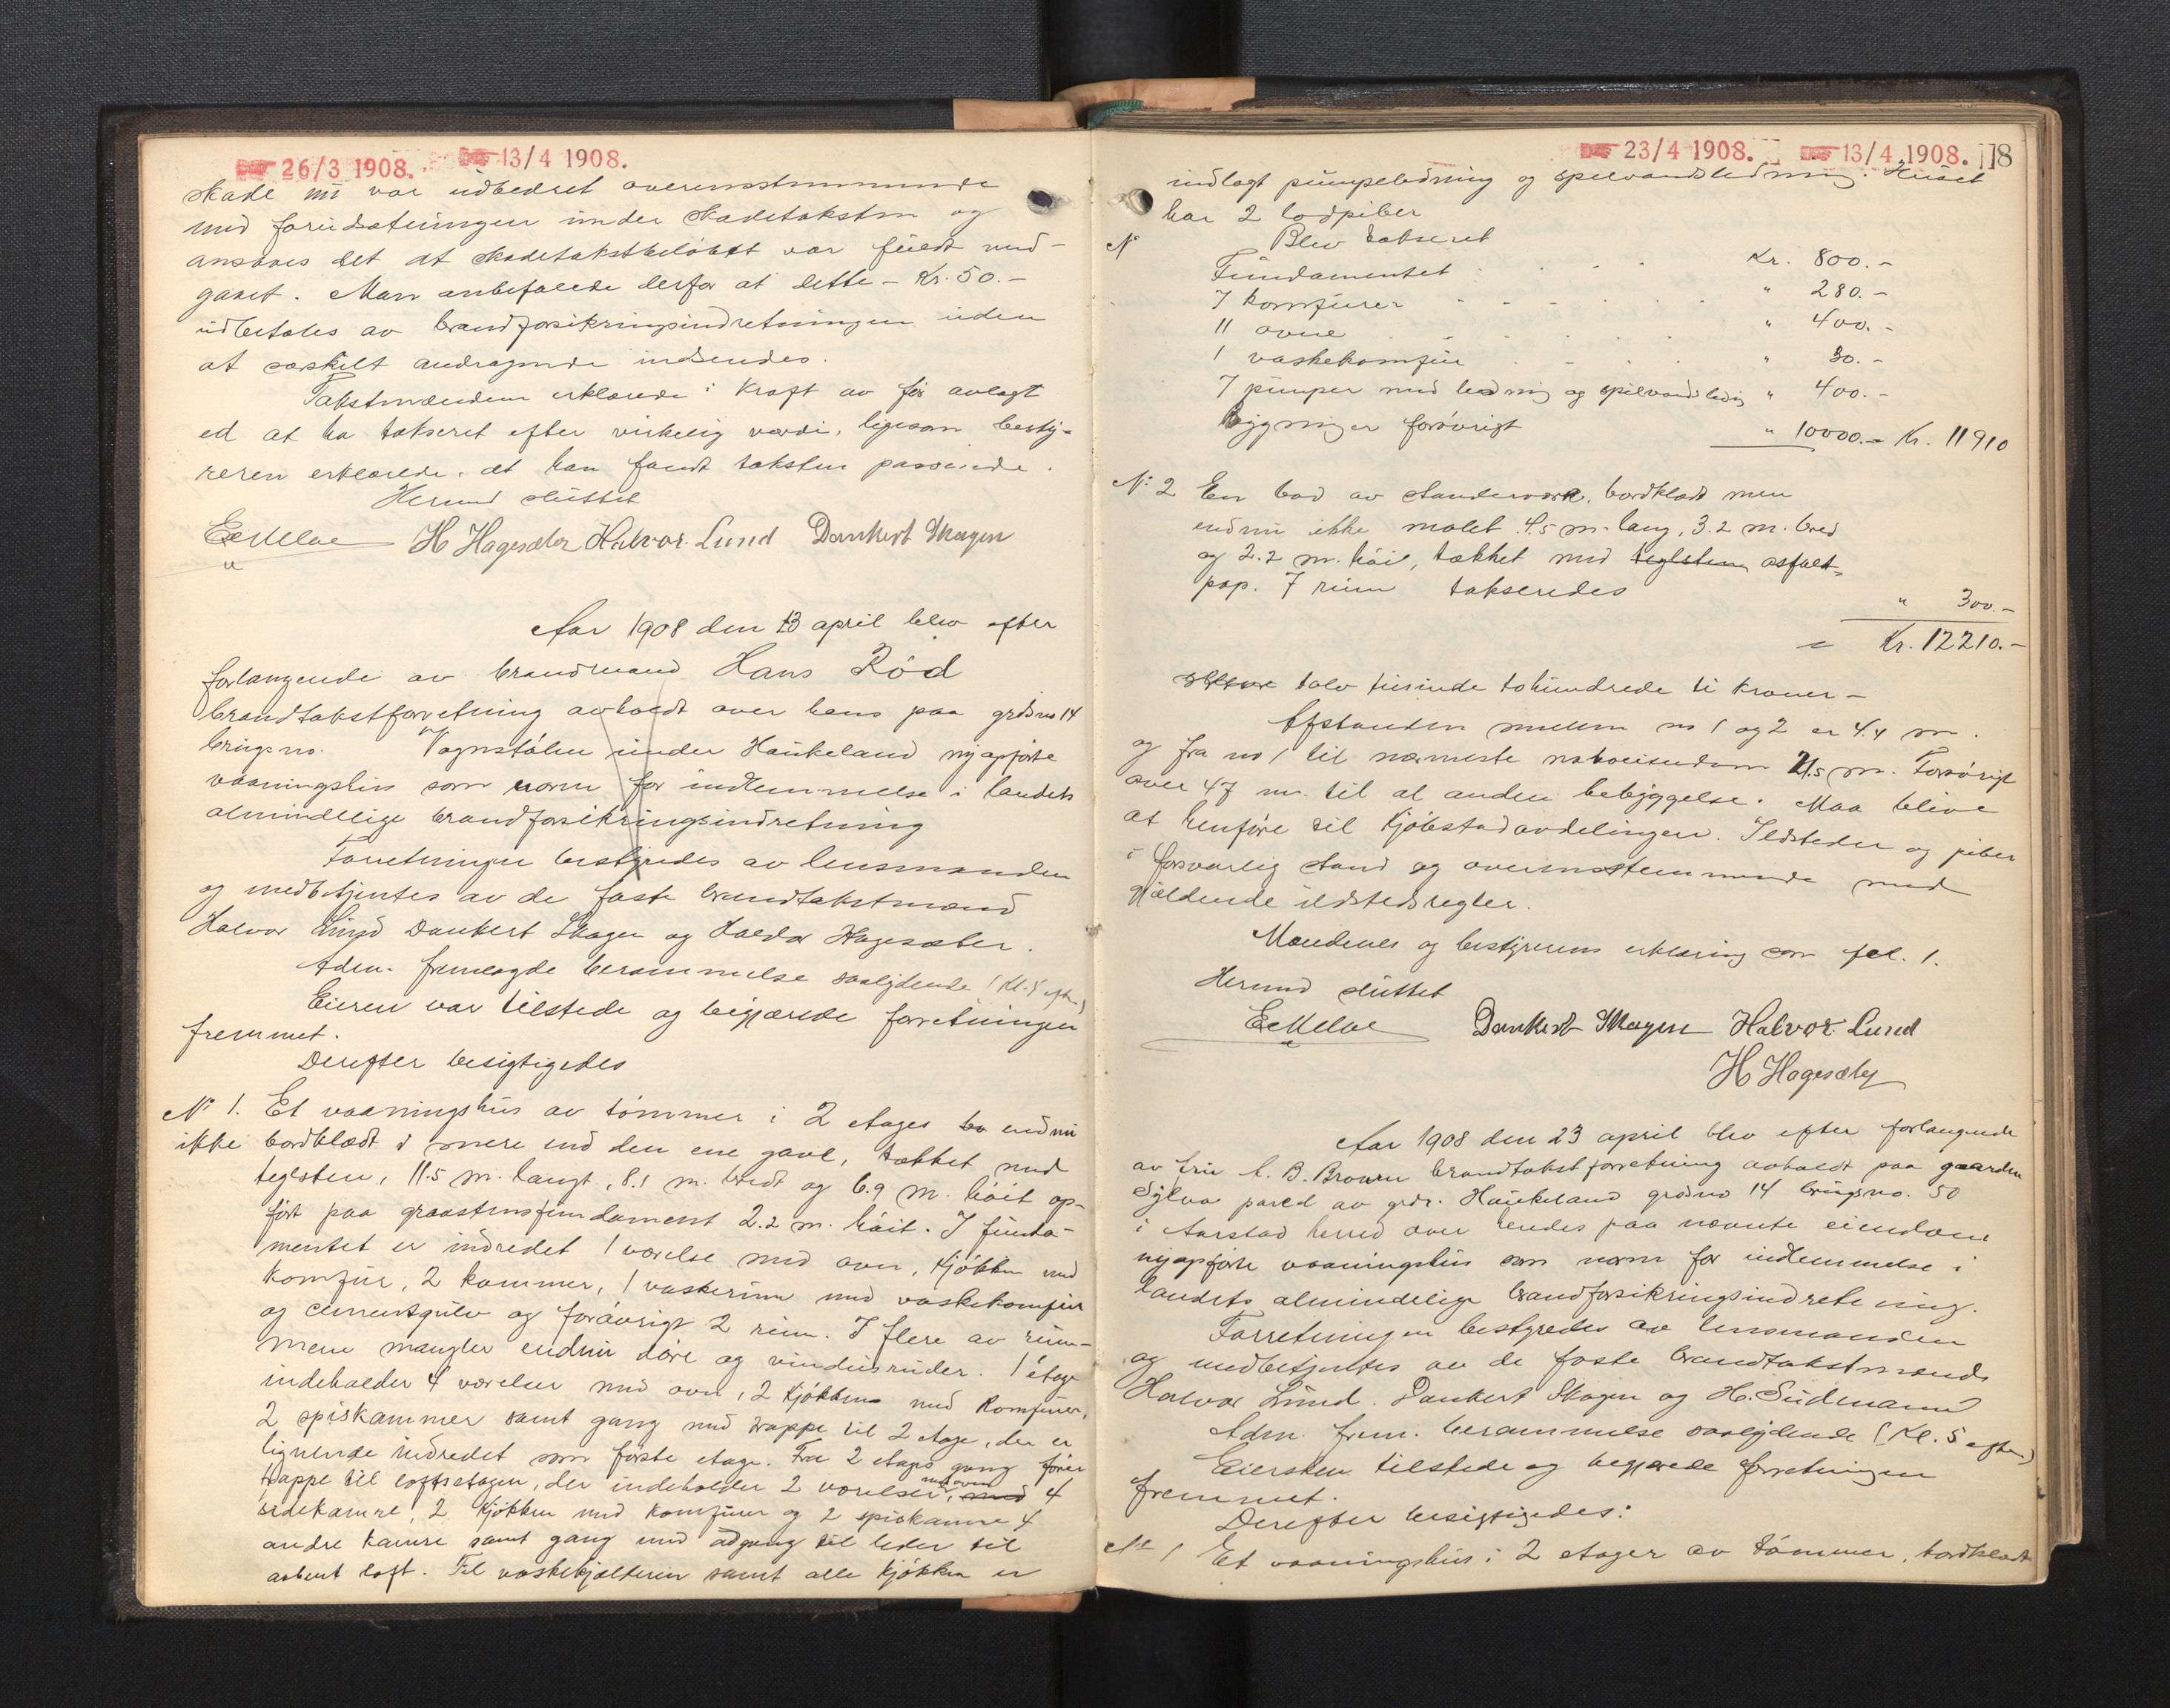 26/3 1908. 13/4 1908.
skade nu var udbedret overensstemmende
med forudsætningen under skadetaksten og
ansaaes det at skadetakstbeløbet var fuldt med-
gaaet. Man anbefalede derfor at dette - Kr. 50.-
udbetales av brandforsikringsindretningen uden
at særskilt andragende indsendes.
Takstmændene erklærede i kraft av før avlagt
ed at ha takseret efter virkelig værdi, ligesom besty-
reren erklærede, at han fandt taksten passende.
Hermed sluttet
H Hagesæter Halvor Lund Dankert Skagen
Aar 1908 den 13 april blev efter
forlangende av brandmand Hans Rød
brandtakstforretning avholdt over hans paa grdsno 14
brugsno. Vognstølen under Haukeland nyopførte
vaaningshus som nævn for indlemmelse i landets
almindelige brandforsikringsindretning
Forretningen bestyredes av lensmanden
og medbetjentes av de faste brandtakstmænd
Halvor Lund Dankert Skagen og Haldor Hagesæter.
Adm. fremlagde berammelse saalydende (Kl. 5 eftm)
Eieren var tilstede og begjærede forretningen
fremmet.
Derefter besigtigedes
No 1. Et vaaningshus av tømmer i 2 etager endnu
ikke bordklædt i mere end den ene gavl, tækket med
teglsten, 11.5 m. langt, 8.1 m. bredt og 6.9 m. høit op-
ført paa graastensfundament 2.2 m. høit. I funda-
mentet er indredet 1 værelse med ovn, kjøkken med
komfur, 2 kammer, 1 vaskerum med vaskekomfur
og cementgulv og forøvrigt 2 rum. I flere av rum-
mene mangler endnu døre og vindusruder. 1 etage
indeholder 4 værelser med ovn, 2 kjøkken med komfurer,
2 spiskammer samt gang med trappe til 2 etage, der er
lignende indredet som første etage. Fra 2 etages gang fører
trappe til loftsetagen, der indeholder 2 værelser med ovn, med 4
sidekamre, 2 kjøkken med komfurer og 2 spiskamre 4
andre kamre samt gang med adgang til leder til
aabent loft. Til vaskekjælderen samt alle kjøkken er
23/4 1908. 13/4 1908. 18
indlagt pumpeledning og spilvandsledning. Huset
har 2 lodpiber
No Blev takseret
Fundamentet Kr. 800.-
7 komfurer " 280.-
11 ovne " 400.-
1 vaskekomfur " 30.-
7 pumper med ledning og spilvandsledng " 400.-
Bygninger forøvrigt " 10000.- Kr. 11910
No 2 En bod av standerværk, bordklædt men
endnu ikke malet 4.5 m. lang, 3.2 m. bred
og 2.2 m. høi, tækket med teglsten asfalt-
pap. 7 rum takseredes
" 300.-
Kr. 12210.-
tolv tusinde tohundrede ti kroner -
Afstanden mellem no 1 og 2 er 4.4 m.
og fra no 1 til nærmeste naboeiendom 21.5 m. Forøvrigt
over 47 m. til al anden bebyggelse. Maa blive
at henføre til kjøbstadavdelingen. Ildsteder og piber
i forsvarlig stand og overensstemmende med
gjældende ildstedsregler.
Mændenes og bestyrerens erklæring som fol. 1.
Hermed sluttet
Dankert Skagen Halvor Lund
H Hagesæter
Aar 1908 den 23 april blev efter forlangende
av fru C. B. Brown brandtakstforretning avholdt paa gaarden
Sylva parcel av grdr. Haukeland grdsno 14 brugsno. 50
i Aarstad herred over hendes paa nævnte eiendom
nyopførte vaaningshus som nævn for indlemmelse i
landets almindelige brandforsikringsindretning.
Forretningen bestyredes av lensmanden
og medbetjentes av de faste brandtakstmænd
Halvor Lund. Dankert Skagen og H. Sudmann
Adm. frem. berammelse saalydende (Kl. 5 eftm)
Eiersken tilstede og begjærede forretningen
fremmet.
Derefter besigtigedes:
No 1 Et vaaningshus i 2 etager av tømmer, bordklædt